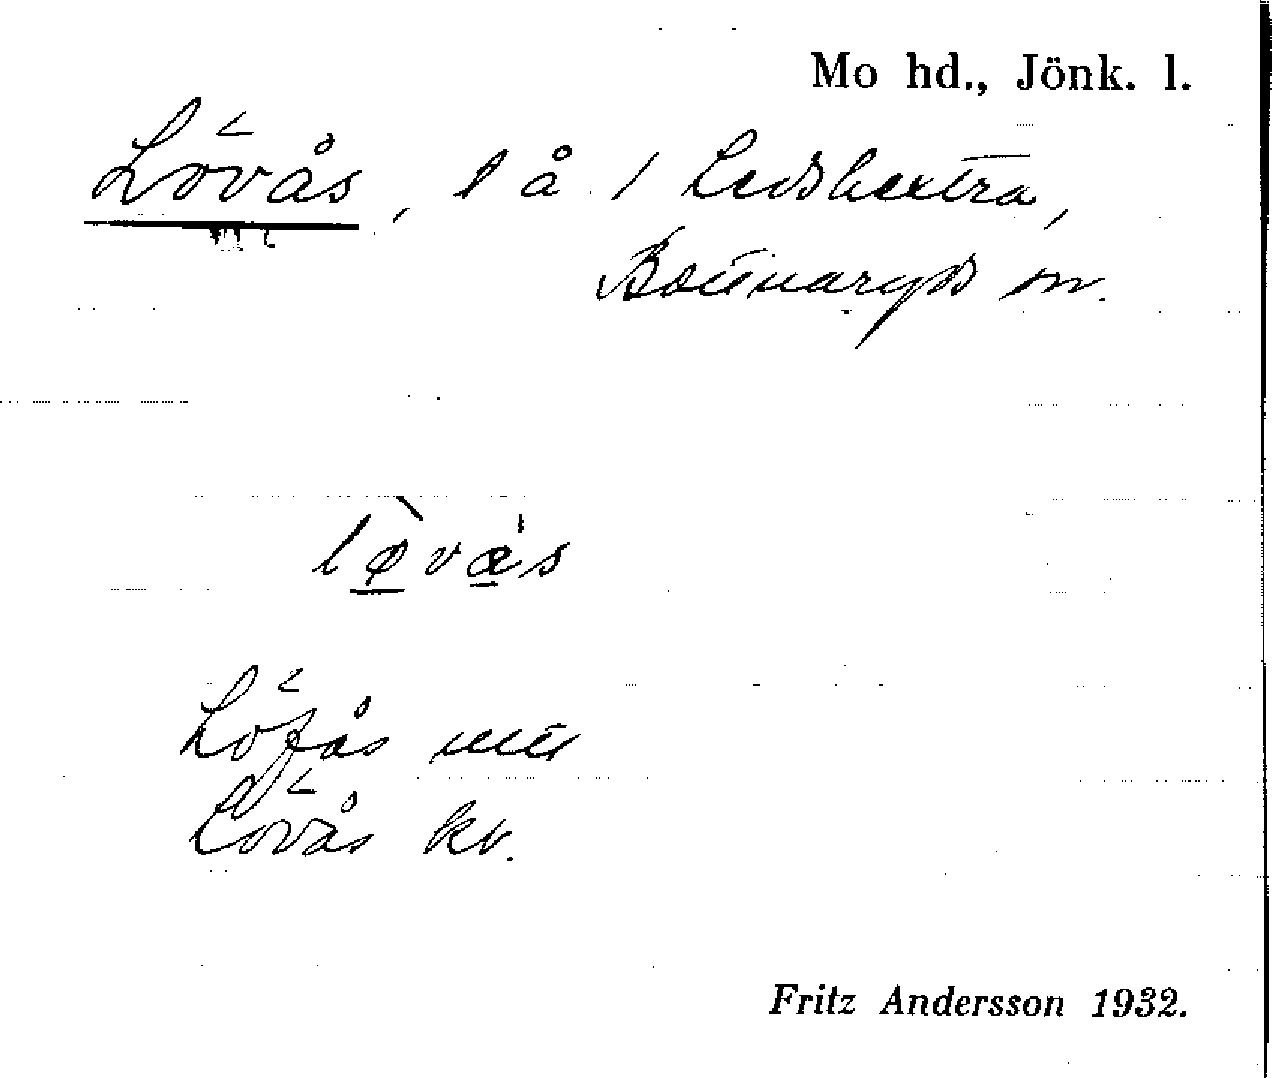 Mo hd., Jönk. l.
Lövås, l å 1
Bottnaryds sn.
lø̀vås
Löfås
Lövås kv.
Fritz Andersson 1932.